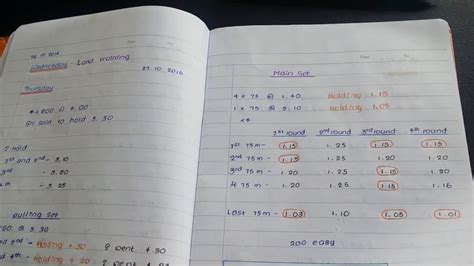 Wednesday - Land training
27.10.2016
Thursday
4 x 200 @ 4.00
said to hold 3.30
hold
1st and 2nd - 3.10
3rd - 3.20
4th - 3.25
Pulling Set
@ 5.30
and 2nd - Holding 4.30 I went 4.30
4th - Holding 4.20 I went
Main Set
4 x 75 @ 1.40 Holding 1.15
1 x 75 @ 2.10 Holding 1.05
x4
1st round 2nd round 3rd round 4th round
1st 75m - 1.15 1.25 1.15 1.15
2nd 75m - 1.15 1.25 1.20 1.20
3rd 75m - 1.20 1.25 1.15 1.20
4 75m - 1.20 1.25 1.15 1.16
Last 75m - 1.03 1.10 1.05 1.01
200 easy